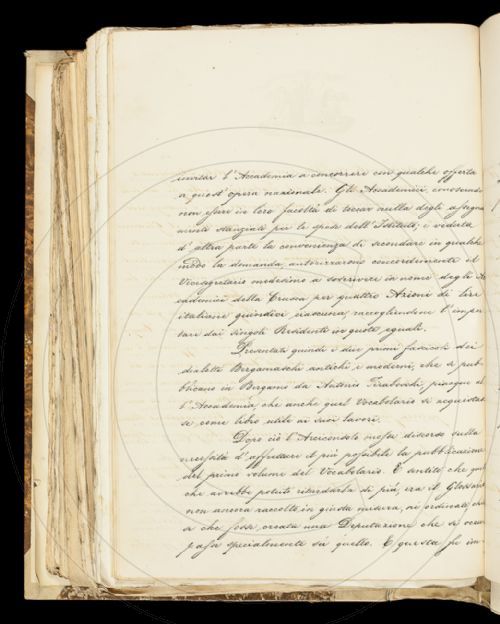 invitar l'Accademia a concorrere con qualche offerta
a quest'opera nazionale. Gli Accademici, conoscendo
non essere in loro facoltà di toccar nulla degli assegna
menti stanziati per le spese dell'Istituto, e veduta
d'altra parte la convenienza di secondare in qualche
modo la domanda, autorizzarono concordemente il
Vicesegretario medesimo a soscrivere in nome degli Ac
cademici della Crusca per quattro Azioni di lire
italiane quindici ciascuna, raccogliendone l'impor
tare dai singoli Residenti in quote eguali.
Presentati quindi i due primi fascicoli dei
dialetti Bergamaschi antichi e moderni, che si pub-
blicano in Bergamo da Antonio Tiraboschi, piacque al
l'Accademia, che anche quel Vocabolario si acquistas
se come libro utile ai suoi lavori.
Dopo ciò l'Arciconsolo mosse discorso sulla
necessità d'affrettare il più possibile la pubblicazione
del primo volume del Vocabolario. E sentito, che quel
che avrebbe potuto ritardarla di più, era il Glossario
non ancora raccolto in giusta misura, nè ordinato, chie
se che fosse creata una Deputazione che si occu
passe specialmente su quello. E questa fu im-